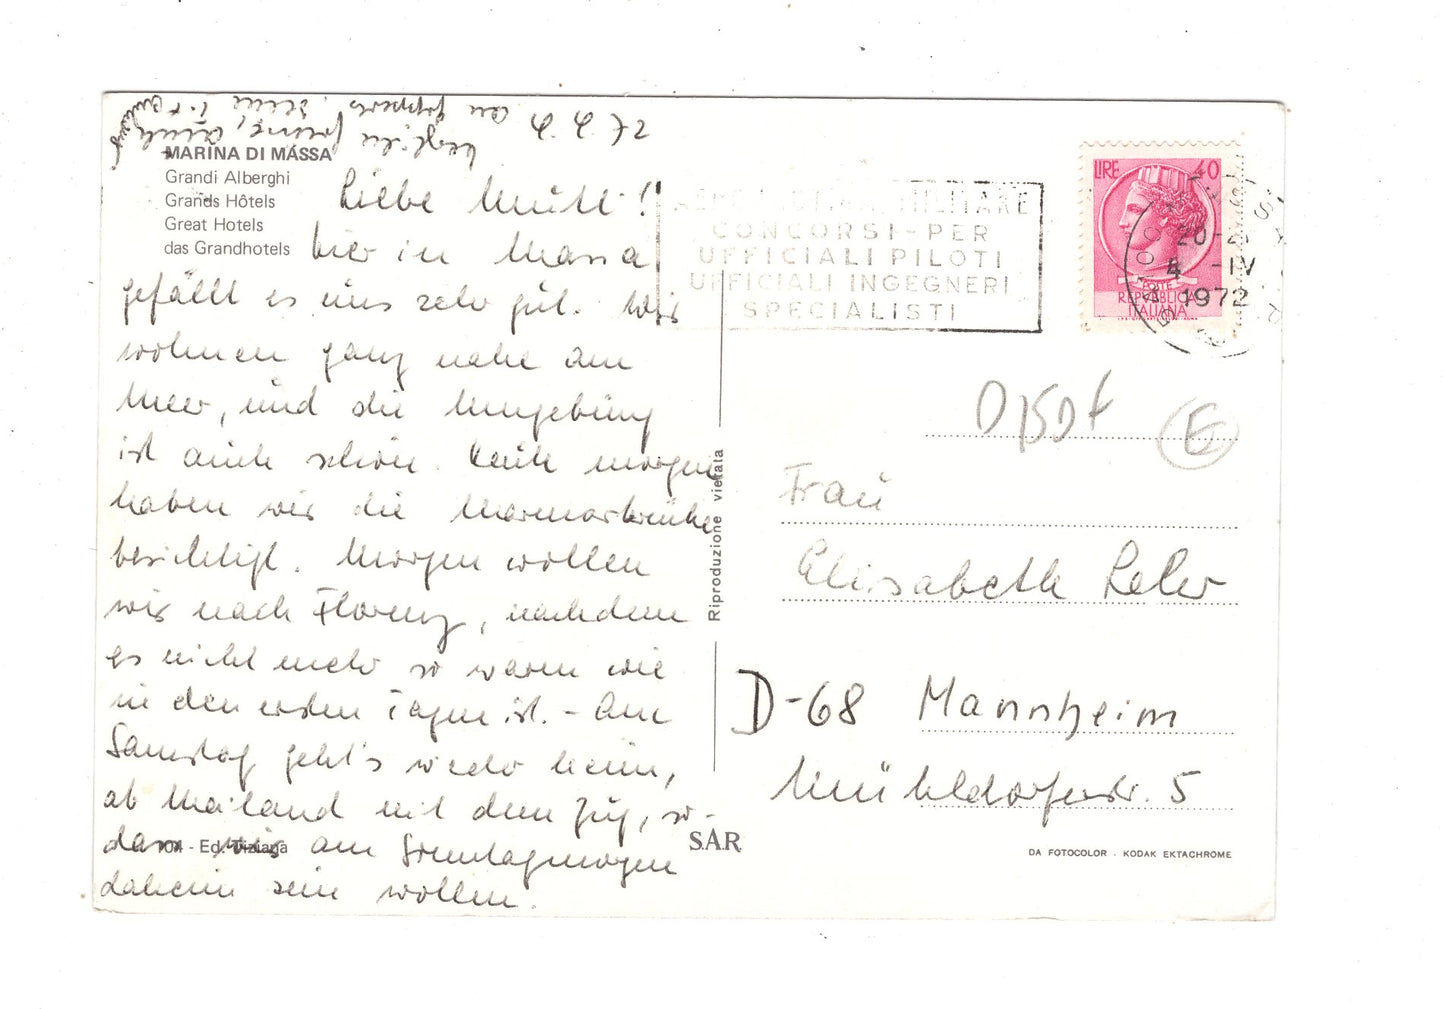 MARINA DI MASSA
Grandi Alberghi
Grands Hôtels
Great Hotels
das Grandhotels
Liebe Mutti!
hier in Massa
gefällt es uns sehr gut. Wir
wohnen ganz nahe am
Meer, und die Umgebung
ist auch schön. Heute morgen
haben wir die Marmorbrüche
besichtigt. Morgen wollen
wir nach Florenz, nachdem
es nicht mehr so warm wie
in den ersten Tagen ist. - Am
Samstag geht's wieder heim,
ab Mailand mit dem Zug, so-
dass wir am Sonntagmorgen
daheim sein wollen.
104 - Ed. Tiziana
S.A.R.
Riproduzione vietata
MILITARE
CONCORSI-PER
UFFICIALI PILOTI
UFFICIALI INGEGNERI
SPECIALISTI
LIRE 40
POSTE
REPUBBLICA
ITALIANA
4 -IV
1972
Frau
Elisabeth
D-68 Mannheim
Mühldorferstr. 5
DA FOTOCOLOR - KODAK EKTACHROME